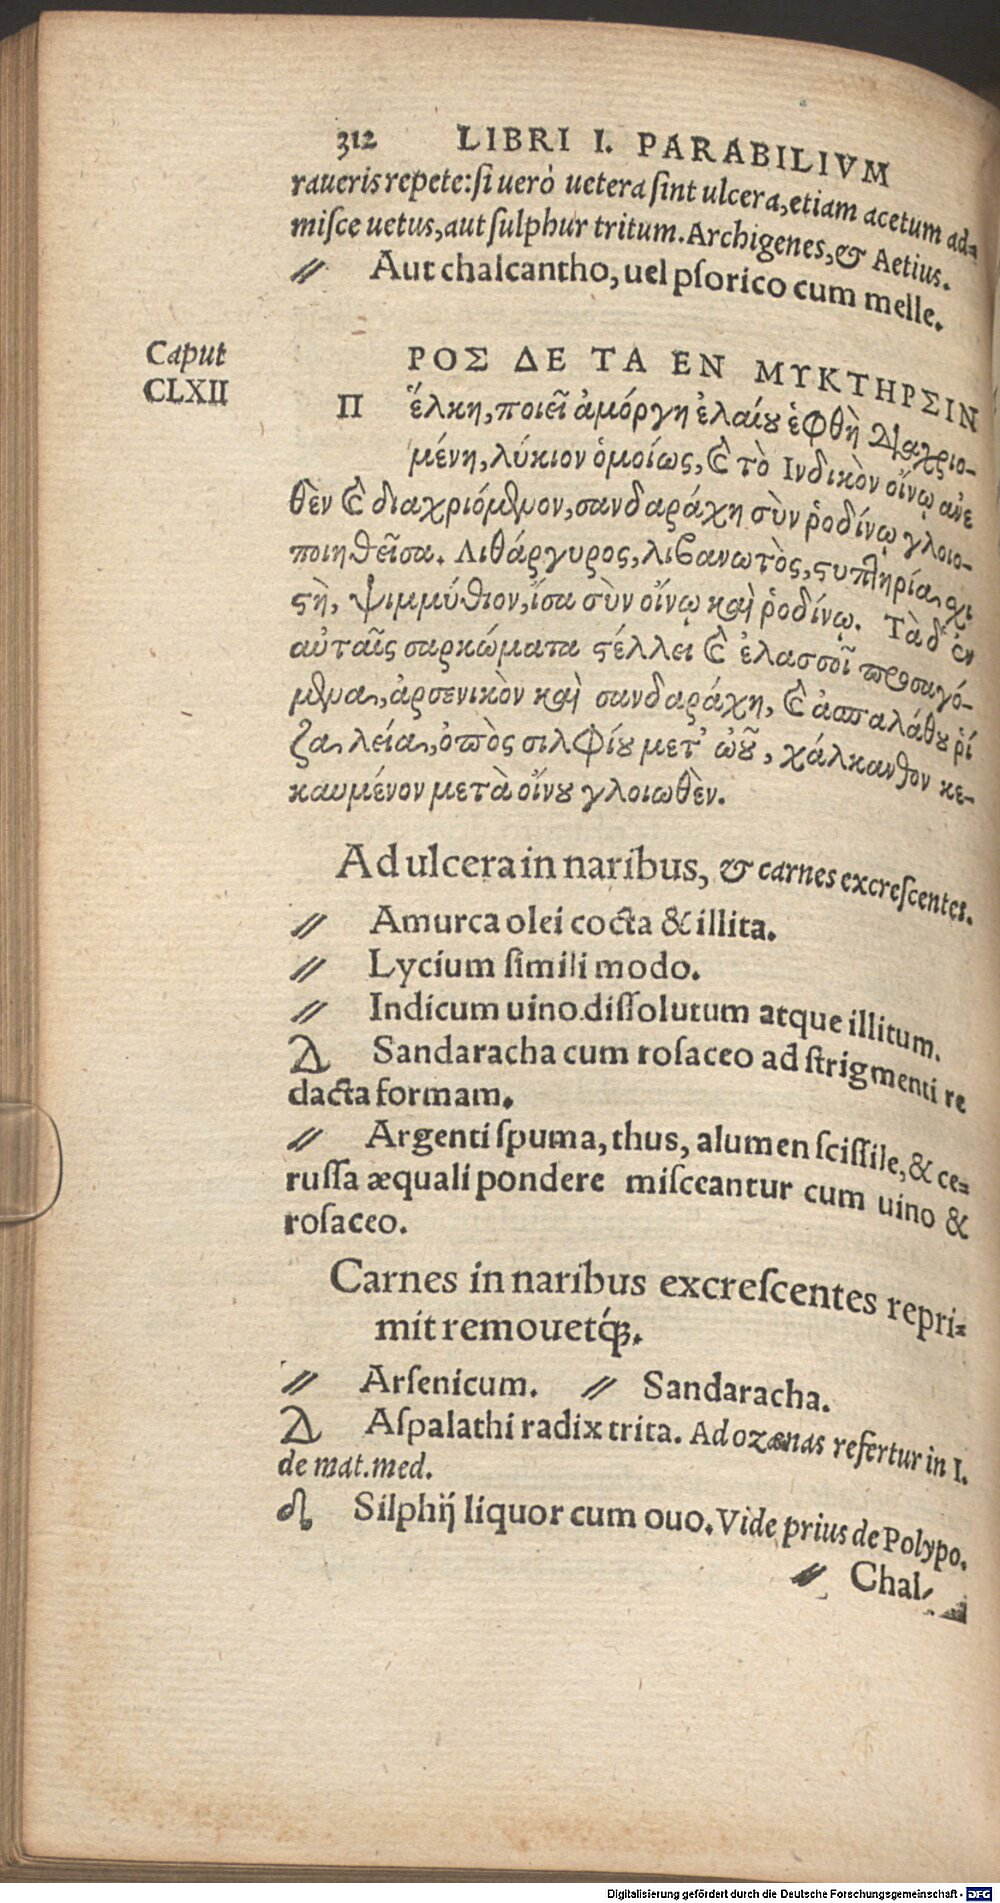 312 LIBRI I. PARABILIVM
raueris repete: si uerò uetera sint ulcera, etiam acetum ad=
misce uetus, aut sulphur tritum. Archigenes, & Aetius.
// Aut chalcantho, uel psorico cum melle.
Caput
CLXII
ΡΟΣ ΔΕ ΤΑ ΕΝ ΜΥΚΤΗΡΣΙΝ
Π ἕλκη, ποιεῖ ἀμόργη ἐλαίȣ ἑφθὴ διαχριο-
μένη, λύκιον ὁμοίως, ϗ̀ τὸ Ινδικὸν οἴνῳ ἀνε
θὲν ϗ̀ διαχριόμενον, σανδαράχη σὺν ῥοδίνῳ γλοιο-
ποιηθεῖσα. Λιθάργυρος, λιβανωτὸς, ϛυπτηρία χι
ϛὴ, ψιμμύθιον, ἴσα σὺν οἴνῳ καὶ ῥοδίνῳ. Τὰ δ' ἐν
αὐταῖς σαρκώματα ϛέλλει ϗ̀ ἐλασσοῖ προσαγό-
μενα, ἀρσενικὸν καὶ σανδαράχη, ϗ̀ ἀσπαλάθȣ ῥί
ζα λεία, ὀπὸς σιλφίȣ μετ' ὠȣ͂, χάλκανθον κε-
καυμένον μετὰ οἴνȣ γλοιωθὲν.
Ad ulcera in naribus, & carnes excrescentes.
// Amurca olei cocta & illita.
// Lycium simili modo.
// Indicum uino dissolutum atque illitum.
Sandaracha cum rosaceo ad strigmenti re
dacta formam.
// Argenti spuma, thus, alumen scissile, & ce=
russa æquali pondere misceantur cum uino &
rosaceo.
Carnes in naribus excrescentes repri=
mit remouetq́;.
// Arsenicum. // Sandaracha.
Aspalathi radix trita. Ad ozænas refertur in I.
de mat. med.
♌ Silphij liquor cum ouo. Vide prius de Polypo.
// Chal
Digitalisierung gefördert durch die Deutsche Forschungsgemeinschaft - DFG